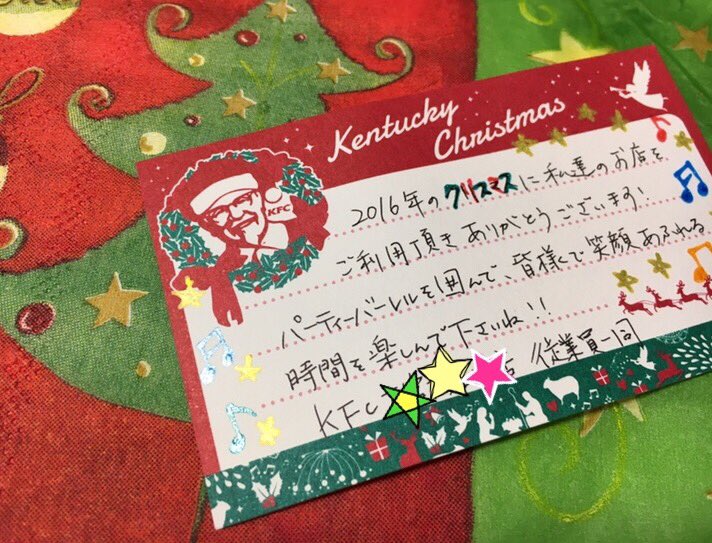 Kentucky
Christmas
KFC
2016年のクリスマスに私達のお店を
ご利用頂きありがとうございます!
パーティーバーレルを囲んで、皆様で笑顔あふれる
時間を楽しんで下さいね!!
KFC 店 従業員一同